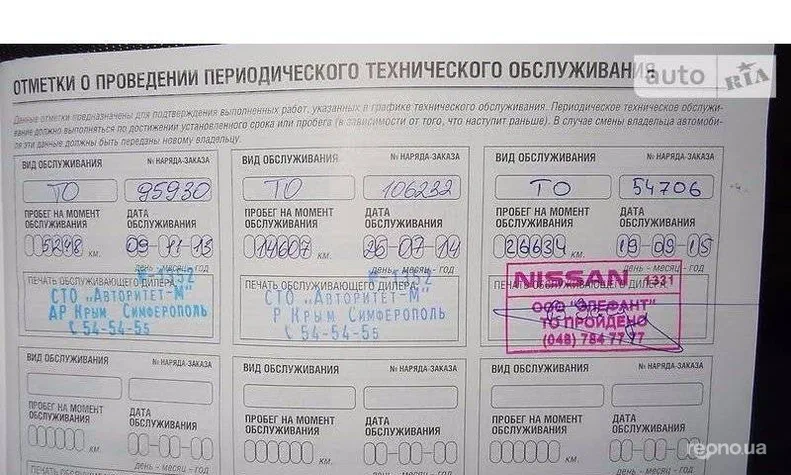 ОТМЕТКИ О ПРОВЕДЕНИИ ПЕРИОДИЧЕСКОГО ТЕХНИЧЕСКОГО ОБСЛУЖИВАНИЯ
auto RIA
Данные отметки предназначены для подтверждения выполненных работ, указанных в графике технического обслуживания. Периодическое техническое обслужи-
вание должно выполняться по достижении установленного срока или пробега (в зависимости от того, что наступит раньше). В случае смены владельца автомоби-
ля эти данные должны быть переданы новому владельцу.
ВИД ОБСЛУЖИВАНИЯ № НАРЯДА-ЗАКАЗА
ТО 95930
ПРОБЕГ НА МОМЕНТ ОБСЛУЖИВАНИЯ ДАТА ОБСЛУЖИВАНИЯ
5248 км. 09-11-13
день - месяц - год
ПЕЧАТЬ ОБСЛУЖИВАЮЩЕГО ДИЛЕРА
СТО „Авторитет-М"
АР Крым Симферополь
54-54-55
ВИД ОБСЛУЖИВАНИЯ № НАРЯДА-ЗАКАЗА
ТО 106232
ПРОБЕГ НА МОМЕНТ ОБСЛУЖИВАНИЯ ДАТА ОБСЛУЖИВАНИЯ
14607 км. 26-07-14
день - месяц - год
ПЕЧАТЬ ОБСЛУЖИВАЮЩЕГО ДИЛЕРА
СТО „Авторитет-М"
Р Крым Симферополь
54-54-55
ВИД ОБСЛУЖИВАНИЯ № НАРЯДА-ЗАКАЗА
ТО 54706
ПРОБЕГ НА МОМЕНТ ОБСЛУЖИВАНИЯ ДАТА ОБСЛУЖИВАНИЯ
26634 км. 19-09-15
день - месяц - год
ПЕЧАТЬ ОБСЛУЖИВАЮЩЕГО ДИЛЕРА
NISSAN 1331
ООО "ЭЛЕФАНТ"
ТО ПРОЙДЕНО
(048) 784 77 77
ВИД ОБСЛУЖИВАНИЯ № НАРЯДА-ЗАКАЗА
ПРОБЕГ НА МОМЕНТ ОБСЛУЖИВАНИЯ ДАТА ОБСЛУЖИВАНИЯ
км.
день - месяц - год
ПЕЧАТЬ ОБСЛУЖИВАЮЩЕГО ДИЛЕРА
ВИД ОБСЛУЖИВАНИЯ № НАРЯДА-ЗАКАЗА
ПРОБЕГ НА МОМЕНТ ОБСЛУЖИВАНИЯ ДАТА ОБСЛУЖИВАНИЯ
км.
день - месяц - год
ВИД ОБСЛУЖИВАНИЯ № НАРЯДА-ЗАКАЗА
ПРОБЕГ НА МОМЕНТ ОБСЛУЖИВАНИЯ ДАТА ОБСЛУЖИВАНИЯ
км.
repno.ua